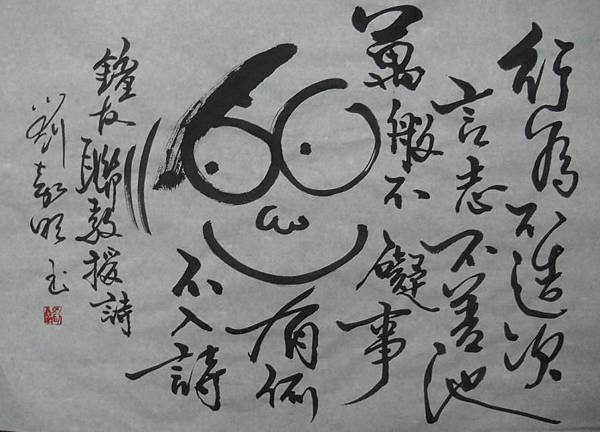 行為不造次
言志不善池
萬般不礙事
有例
不入詩
鐘友聯教授詩
劉嘉明